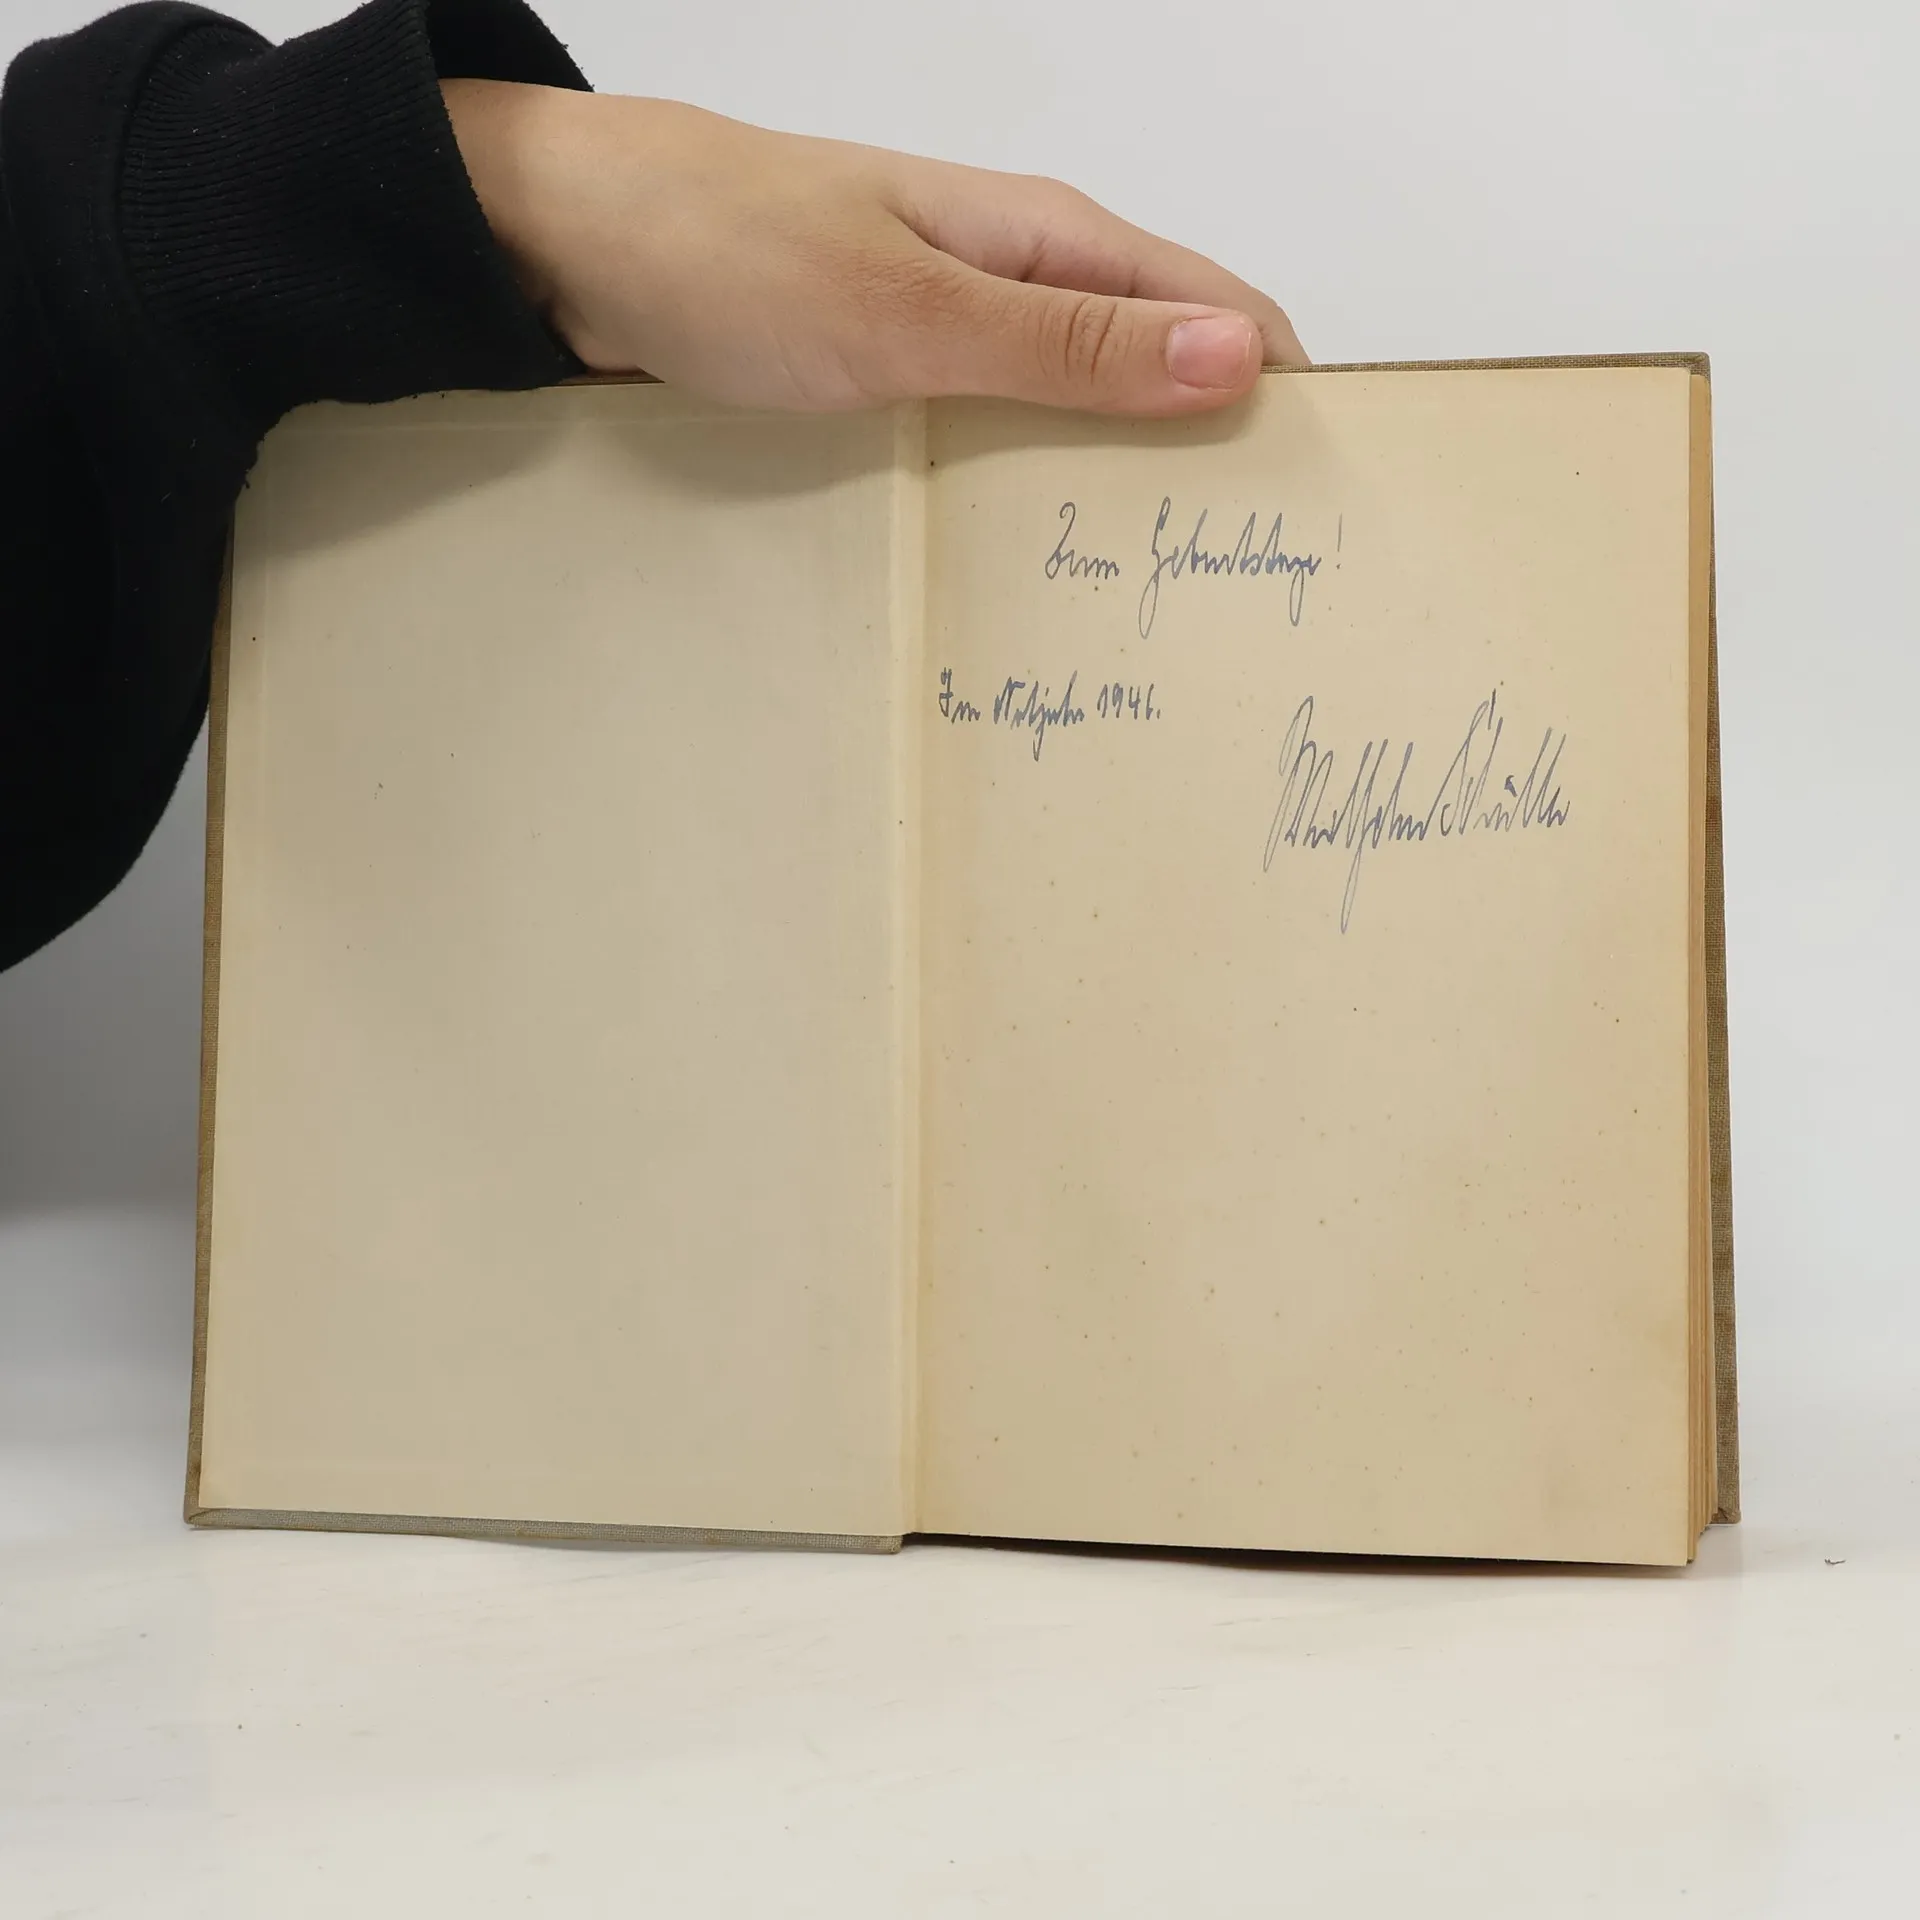 Zum Geburtstage!
Im Notjahr 1946.
Wilhelm